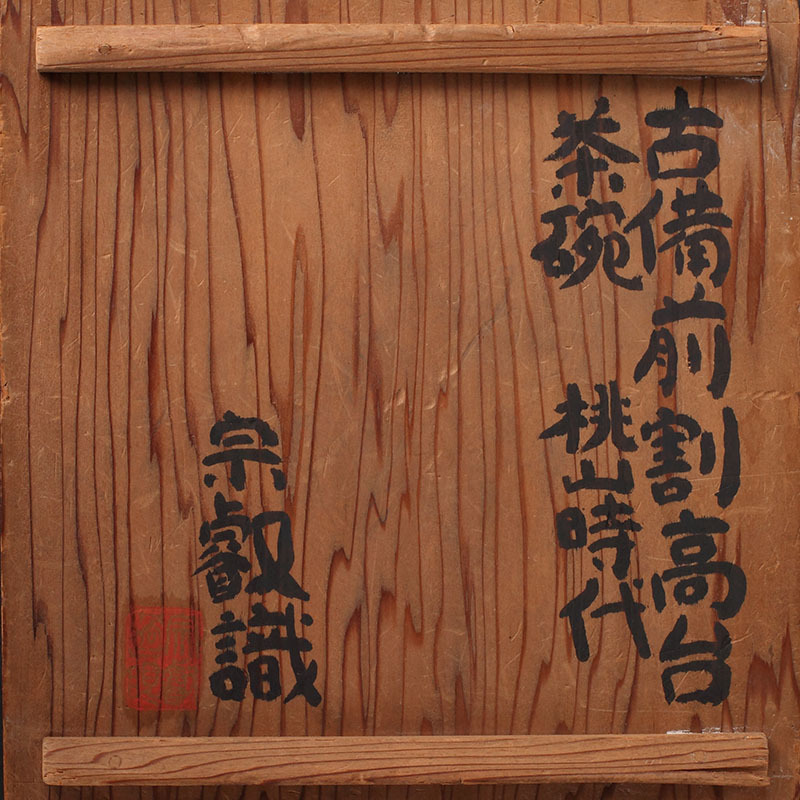 古備前割高台
茶碗 桃山時代
宗叡識